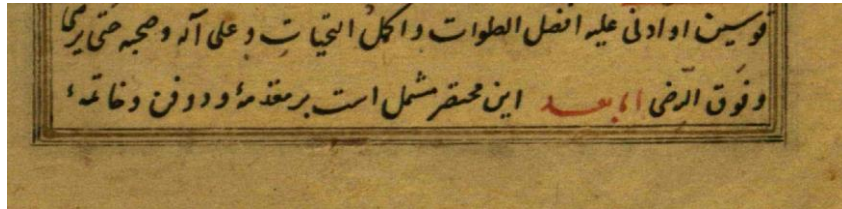 قوسین او ادنی علیه افضل الصلوات و اکمل التحیات و علی آله و صحبه حتی یرضی
و فوق الرضی اما بعد این مختصر مشتمل است بر مقدمهٔ و دو فن و خاتمهٔ